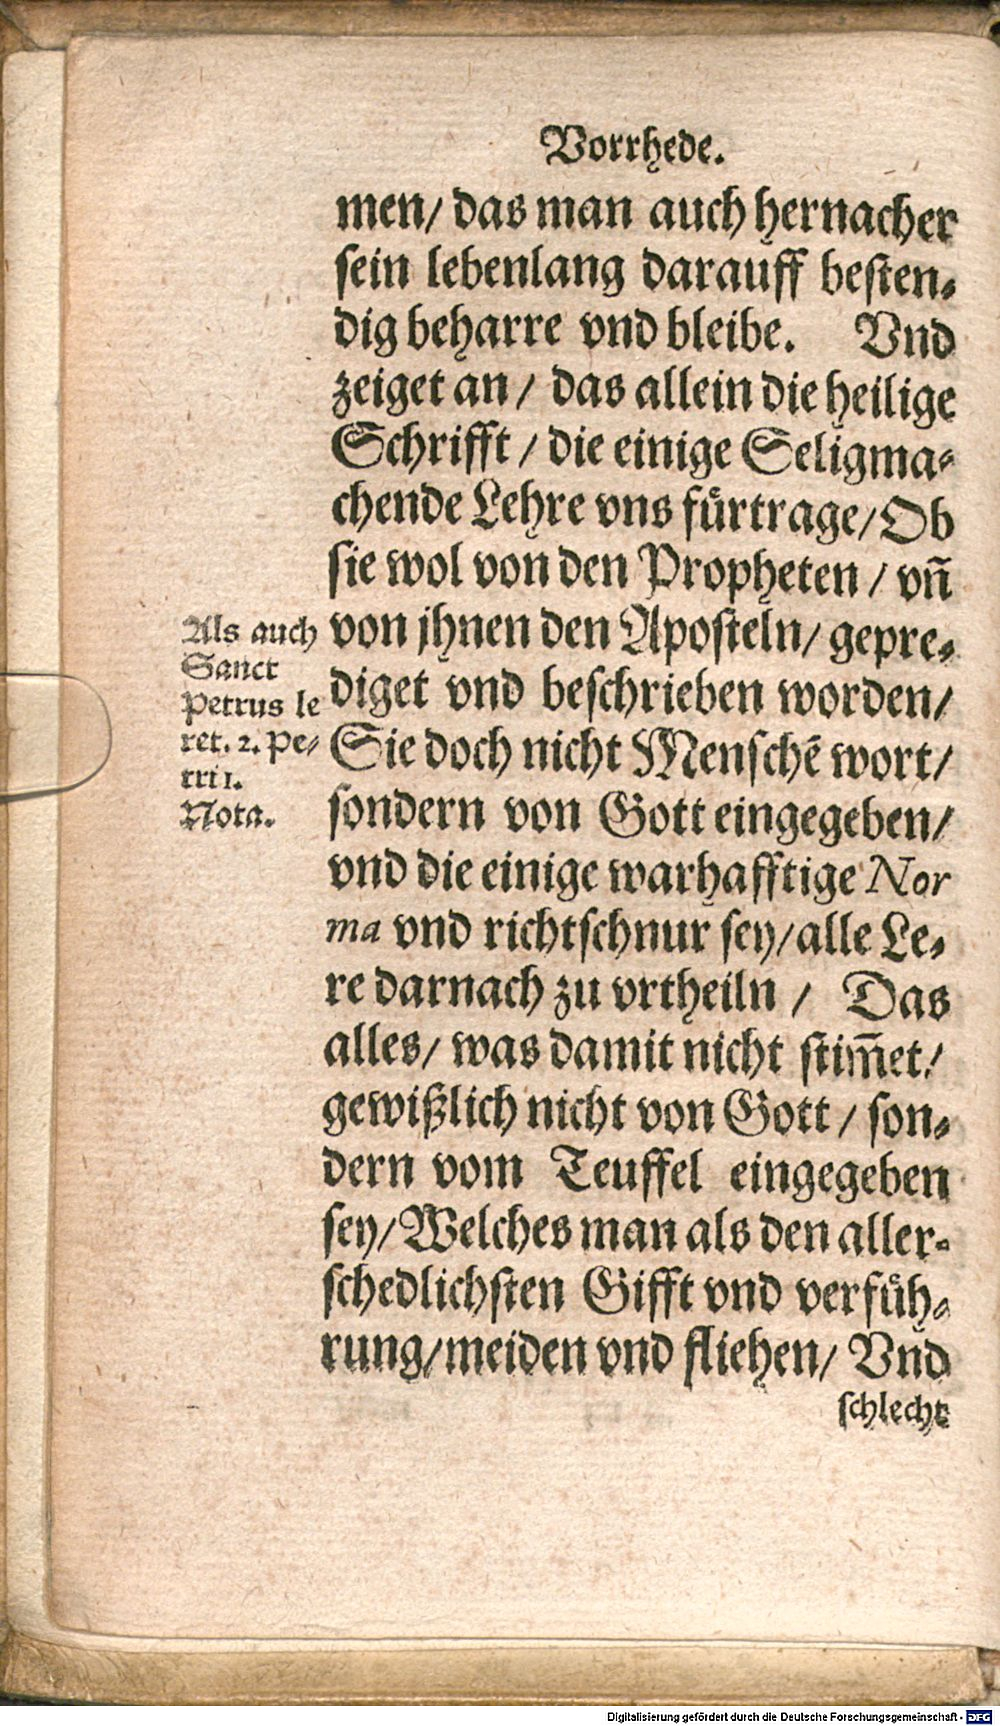 Vorrhede.
men/ das man auch hernacher
sein lebenlang darauff besten⸗
dig beharre vnd bleibe. Vnd
zeiget an / das allein die heilige
Schrifft / die einige Seligma⸗
chende Lehre vns fuͤrtrage/ Ob
sie wol von den Propheten / vn̄
von jhnen den Aposteln/ gepre⸗
diget vnd beschrieben worden/
Sie doch nicht Menschē wort/
sondern von Gott eingegeben/
vnd die einige warhafftige Nor
ma vnd richtschnur sey/ alle Le⸗
re darnach zu vrtheiln / Das
alles/ was damit nicht stim̄et/
gewißlich nicht von Gott / son⸗
dern vom Teuffel eingegeben
sey/ Welches man als den aller⸗
schedlichsten Gifft vnd verfuͤh⸗
rung/ meiden vnd fliehen/ Vnd
schlecht
Als auch
Sanct
Petrus le
ret. 2. Pe⸗
tri 1.
Nota.
Digitalisierung gefördert durch die Deutsche Forschungsgemeinschaft - DFG